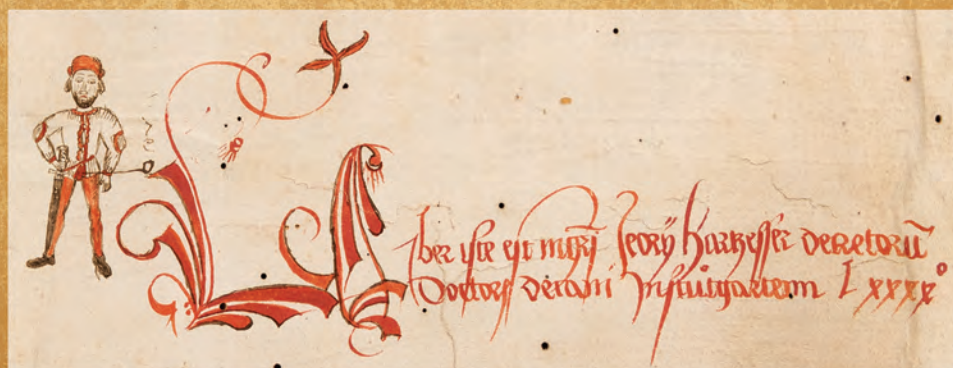 Liber iste est mgrĩ Jeorÿ hartzesser decretorū
Doctoris decani Instutgartenn Lxxxx°